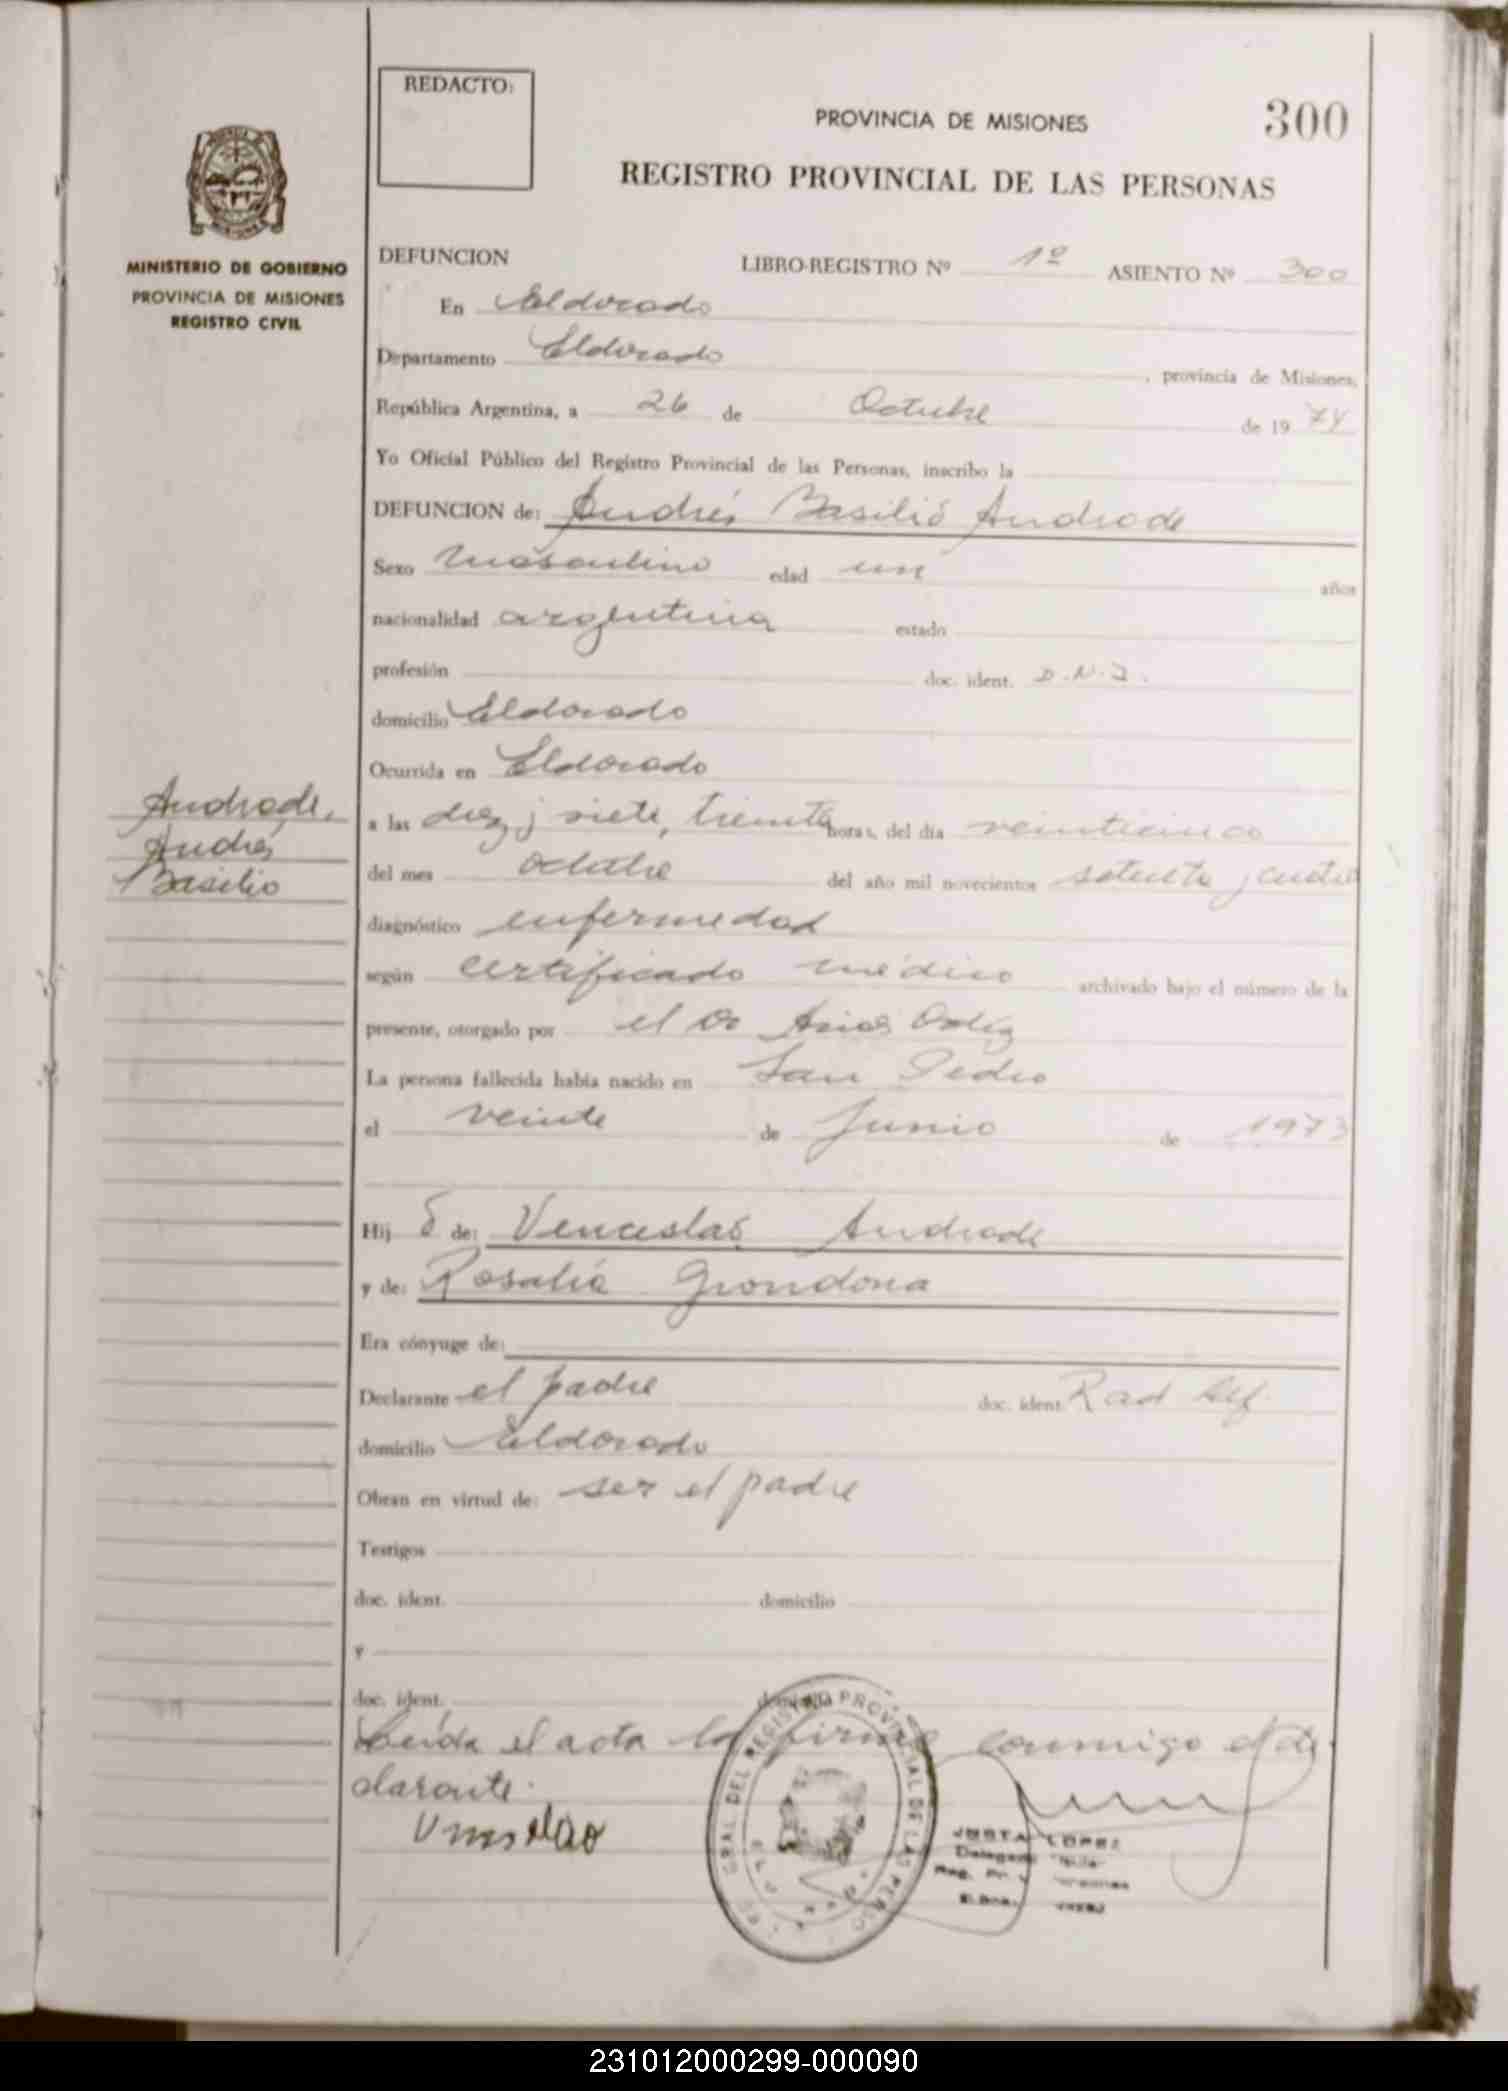 REDACTO:
PROVINCIA DE MISIONES
300
REGISTRO PROVINCIAL DE LAS PERSONAS
MINISTERIO DE GOBIERNO
PROVINCIA DE MISIONES
REGISTRO CIVIL
DEFUNCION LIBRO-REGISTRO Nº 1º ASIENTO Nº 300
En Eldorado
Departamento Eldorado, provincia de Misiones,
República Argentina, a 26 de Octubre de 1974
Yo Oficial Público del Registro Provincial de las Personas, inscribo la
DEFUNCION de: Andrés Basilio Andrade
Sexo masculino edad un años
nacionalidad argentina estado
profesión doc. ident. D.N.I.
domicilio Eldorado
Ocurrida en Eldorado
Andrade,
Andrés
Basilio
a las diez y siete, treinta horas, del día veinticinco
del mes octubre del año mil novecientos setenta y cuatro
diagnóstico enfermedad
según certificado médico archivado bajo el número de la
presente, otorgado por el Dr Arias Ortiz
La persona fallecida había nacido en San Pedro
el veinte de Junio de 1973
Hijo de: Venceslao Andrade
y de: Rosalía Grondona
Era cónyuge de:
Declarante el padre doc. ident.
domicilio Eldorado
Obran en virtud de: ser el padre
Testigos
doc. ident. domicilio
y
doc. ident. domicilio
Leída el acta la firma conmigo el de
clarante.
JUSTA LOPEZ
231012000299-000090